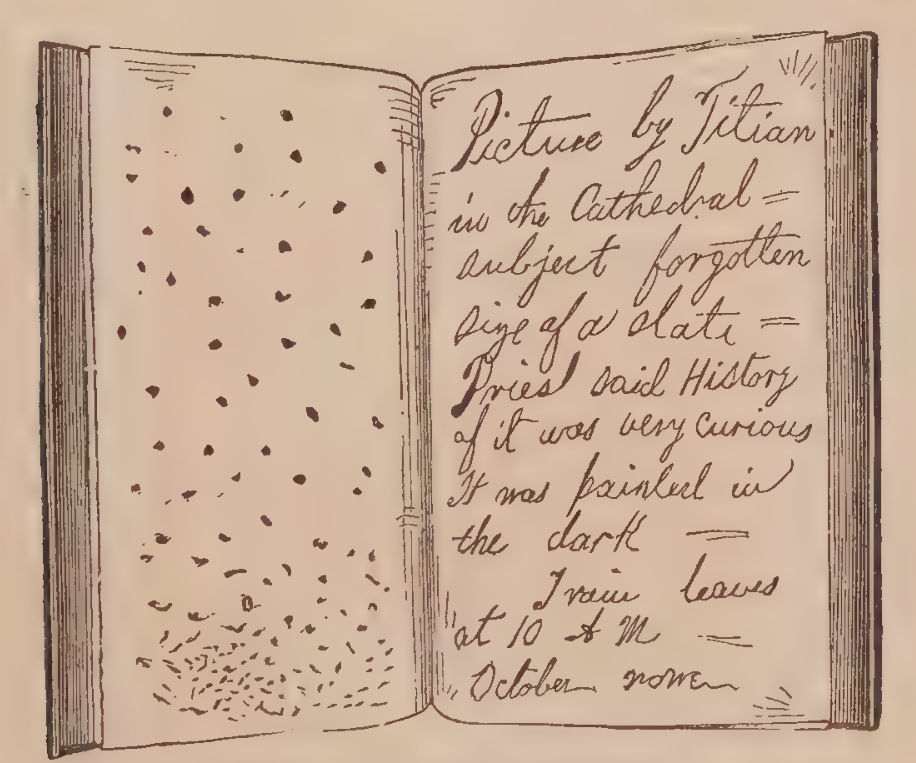 Picture by Titian
in the Cathedral =
subject forgotten
size of a slate =
Priest said History
of it was very curious
It was painted in
the dark —
Train leaves
at 10 A M =
October none